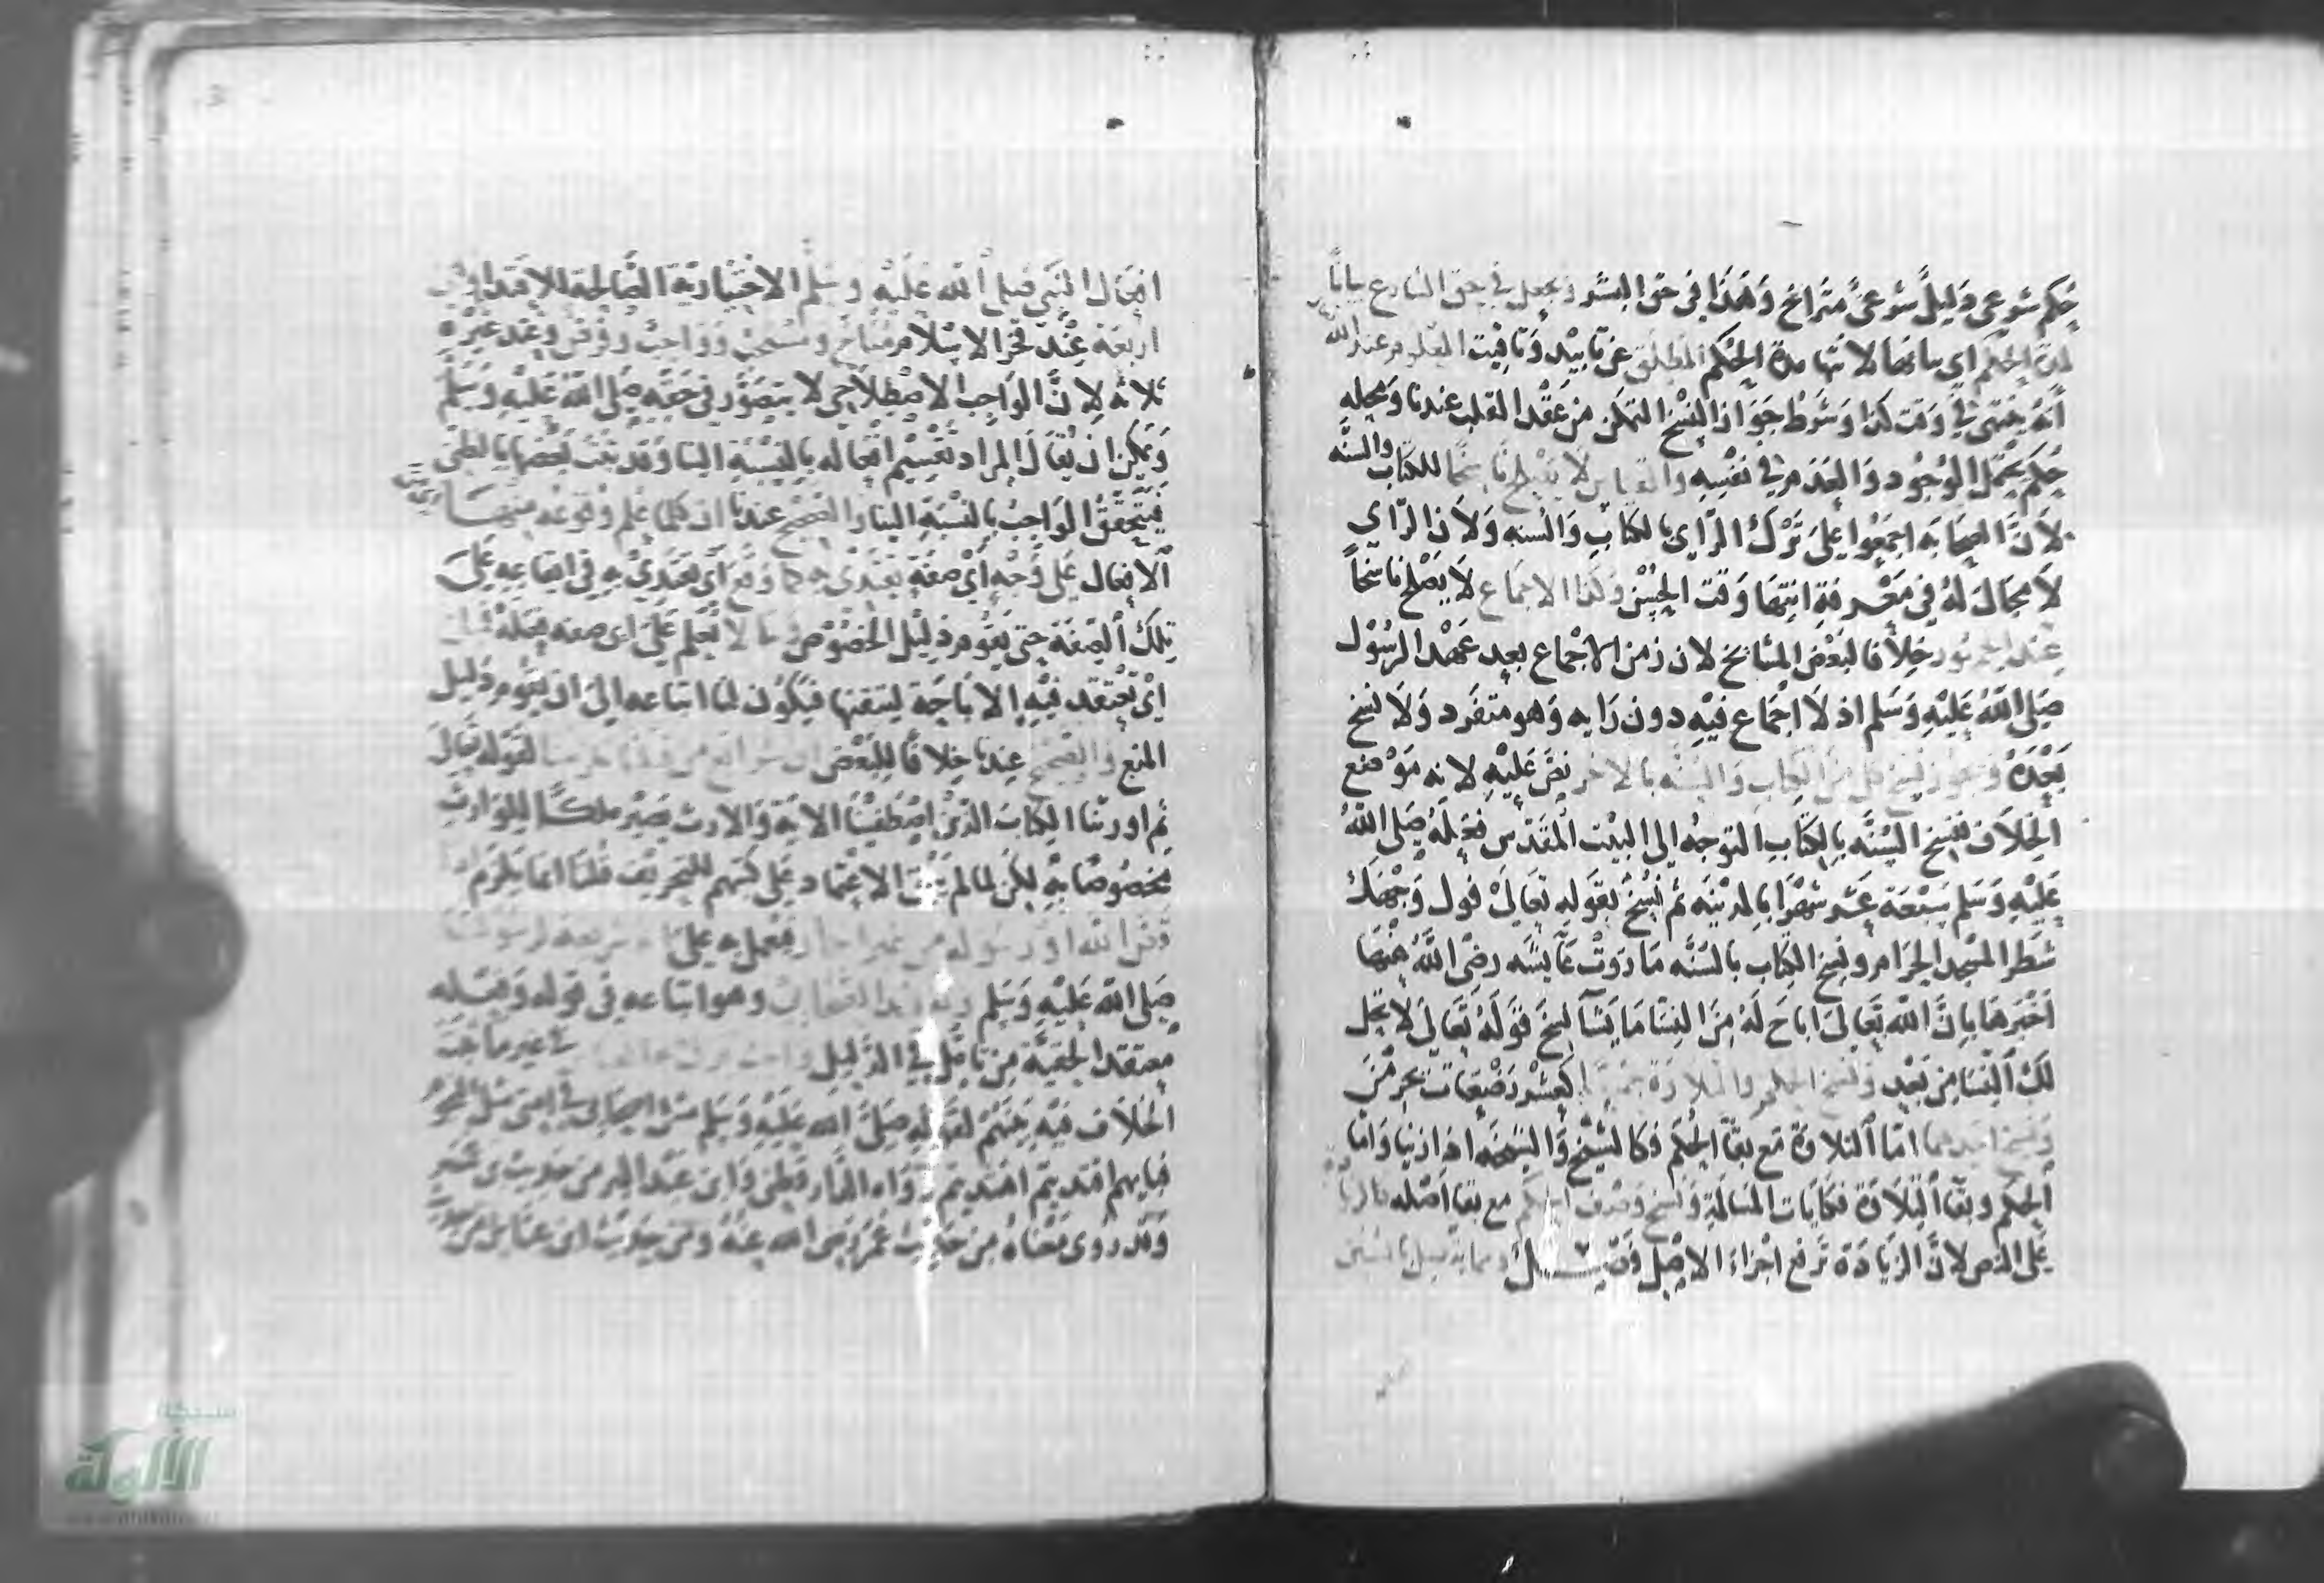 حكم شرعي دليل شرعي متراخ وهذا في حق البشر ويجعل في حق الشارع بيانا
لمدة الحكم اي بيانها لانتها مدة الحكم المطلق عن تابيد وتاقيت المعلوم عند الله
انه ينتهي في وقت كذا وشرط جواز النسخ التمكن من عقد القلب عندنا ومحله
حكم يحتمل الوجود والعدم في نفسه والقياس لا يصلح ناسخا للكتاب والسنه
لان الصحابه اجمعوا على ترك الراي بالكتاب والسنه ولان الراي
لا مجال له في معرفة انتها وقت الحسن وكذا الاجماع لا يصلح ناسخا
عند الجمهور خلافا لبعض المشايخ لان زمن الاجماع بعد عهد الرسول
صلى الله عليه وسلم اذ لا اجماع فيه دون رايه وهو متفرد ولا نسخ
بعده ويجوز نسخ كل من الكتاب والسنه بالاخر نص عليه لانه موضع
الخلاف فنسخ السنه بالكتاب التوجه الى البيت المقدس فعله صلى الله
عليه وسلم سبعة عشر شهرا بالمدينه ثم نسخ بقوله تعالى فول وجهك
شطر المسجد الحرام ونسخ الكتاب بالسنه ما روت عايشه رضي الله عنها
اخبرها بان الله تعالى اباح له من النسا ما يشا نسخ قوله تعالى لا تحل
لك النسا من بعد ونسخ الحكم والتلاوة جميعا كعشر رضعات يحرمن
ونسخ احدهما اما التلاوة مع بقا الحكم فكالشيخ والشيخه اذا زنيا واما
الحكم وبقا التلاوة فكايات المسالمة ونسخ وصف الحكم مع بقا اصله كالزيادة
على النص لان الزيادة ترفع اجزاء الاصل فصل
افعال النبي صلى الله عليه وسلم الاختيارية الصالحة للاقتدا
اربعة عند فخر الاسلام مباح ومستحب وواجب وفرض وعند غيره
ثلاثه لان الواجب الاصطلاحي لا يتصور في حقه صلى الله عليه وسلم
ويمكن ان يقال المراد تقسيم افعاله بالنسبة الينا وقد يثبت بعضها بالظني
فيتحقق الواجب بالنسبة الينا والصحيح عندنا ان كلما علم وقوعه منها
الافعال على وجه اي صفة يقتدى به كما وقع اي يقتدي به في ايقاعه على
تلك الصفة حتى يقوم دليل الخصوص وما لا نعلم على اي صفه فعله
اي نعتقد فيه الاباحة لتيقنها فيكون لنا اتباعه الى ان يقوم دليل
المنع والصحيح عندنا خلافا للبعض ان شرائع من قبلنا لقوله تعالى
ثم اورثنا الكتاب الذين اصطفينا الاية والارث يصير ملكا للوارث
مخصوصا به لكن لما لم يثبت الاعتماد على كتبهم للتحريف قلنا انما يلزم
قص الله او رسوله من غير انكار فنعمل به على انه شريعة لرسولنا
صلى الله عليه وسلم وتقليد الصحابي وهو اتباعه في قوله وفعله
معتقدا لحقيته من تامل في الدليل واجب
الخلاف فيه بينهم لقوله صلى الله عليه وسلم مثل اصحابي في امتي مثل النجوم
فبايهم اقتديتم اهتديتم رواه الدارقطني وابن عبد البر من حديث
وقد روي معناه من حديث عمر رضي الله عنه ومن حديث ابن عباس
شبكة
الألوكة